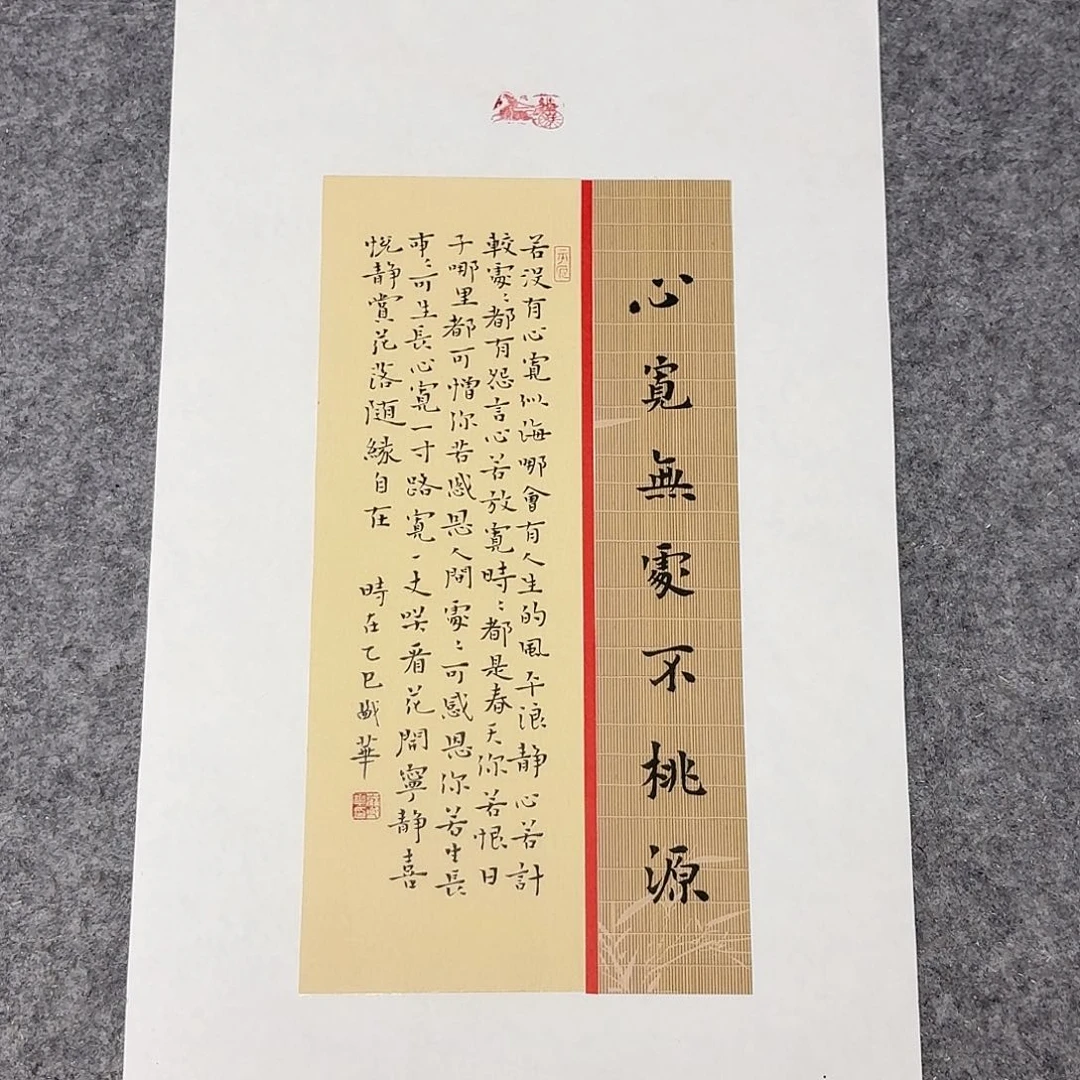 心寬無處不桃源
若没有心寬似海哪會有人生的風平浪静心若計
較處〻都有怨言心若放寬時〻都是春天你若恨日
子哪里都可憎你若感恩人間處〻可感恩你若生長
事〻可生長心寬一寸路寬一丈咲看花間寧静喜
悦静賞花落随緣自在
時在乙巳華